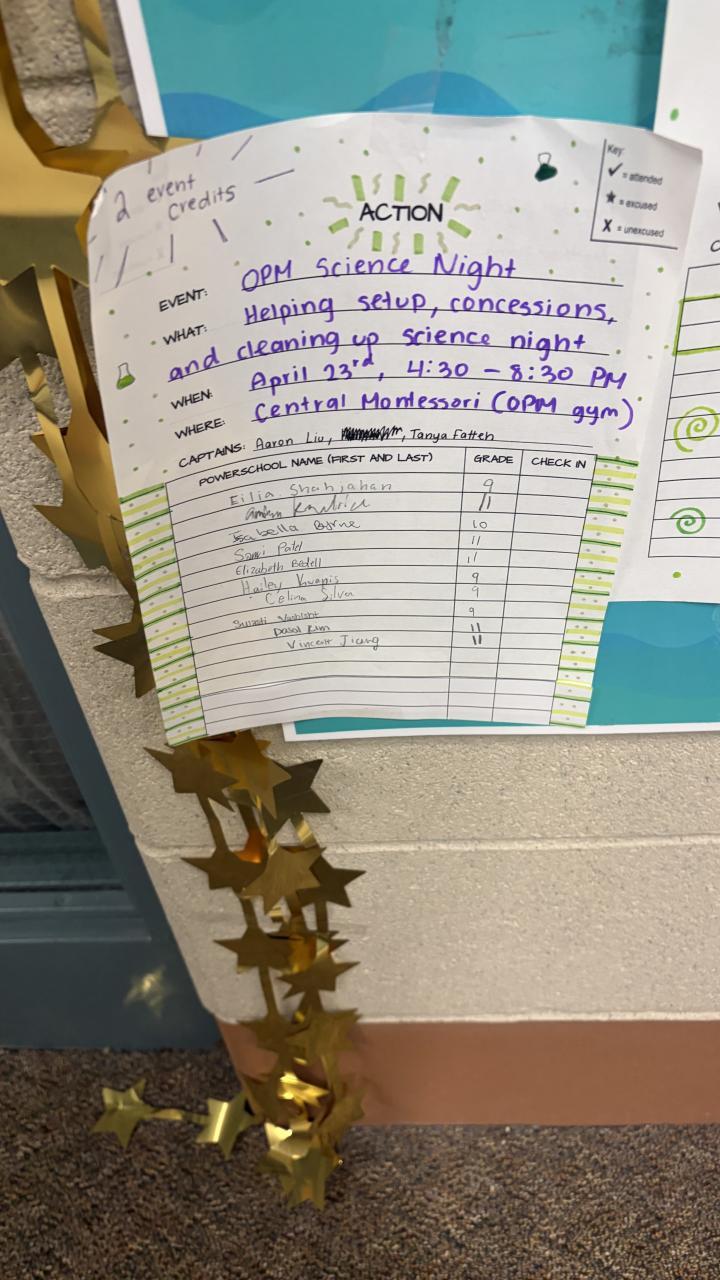 2 event
credits
Key:
✓ = attended
★ = excused
X = unexcused
ACTION
EVENT: OPM Science Night
WHAT: Helping setup, concessions,
and cleaning up science night
WHEN: April 23rd, 4:30 - 8:30 PM
WHERE: Central Montessori (OPM gym)
CAPTAINS: Aaron Liu, Tanya Fatteh
POWERSCHOOL NAME (FIRST AND LAST) GRADE CHECK IN
Eilia Shahjahan 9
11
Isabella Byrne 10
Sami Patel 11
Elizabeth Bedell 11
Hailey 9
Celina Silver 9
9
Dasol Kim 11
Vincent Jiang 11